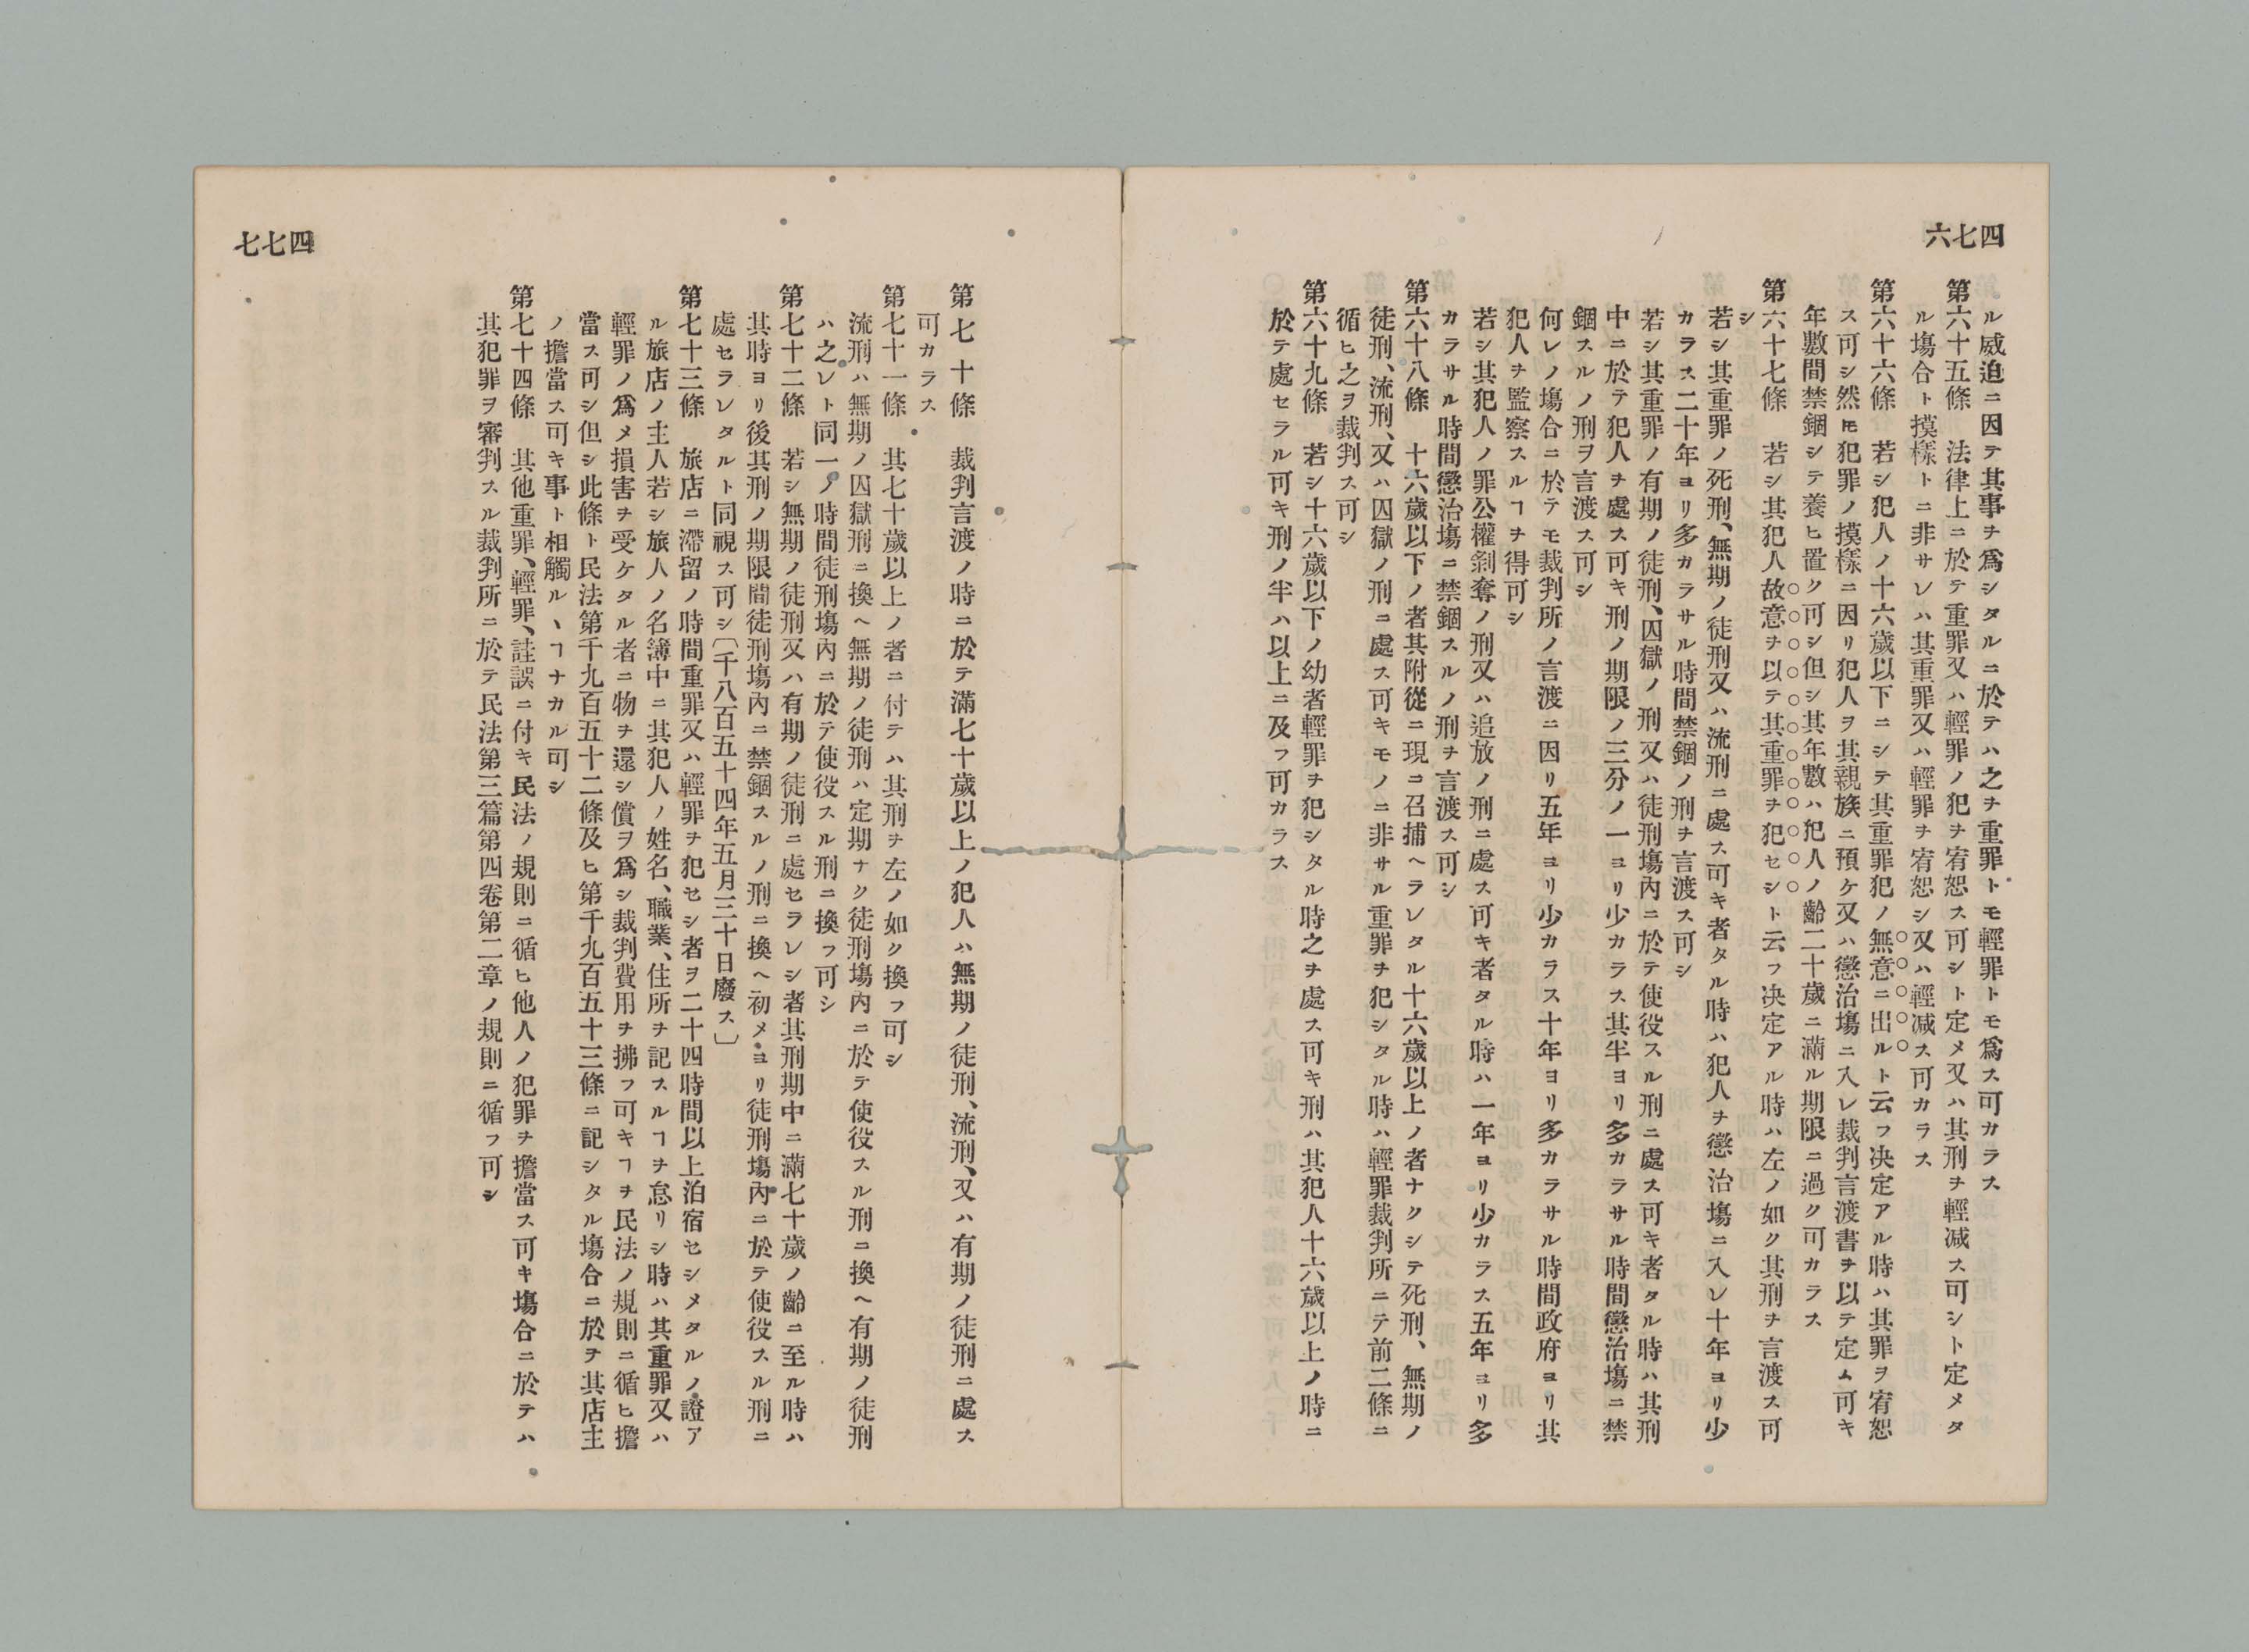 四七六
ル威迫ニ因テ其事ヲ爲シタルニ於テハ之ヲ重罪トモ輕罪トモ爲ス可カラス
第六十五條　法律上ニ於テ重罪又ハ輕罪ノ犯ヲ宥恕ス可シト定メ又ハ其刑ヲ輕減ス可シト定メタ
ル塲合ト摸樣トニ非サレハ其重罪又ハ輕罪ヲ宥恕シ又ハ輕減ス可カラス
第六十六條　若シ犯人ノ十六歲以下ニシテ其重罪犯ノ無意ニ出ルト云フ决定アル時ハ其罪ヲ宥恕
ス可シ然ㇳモ犯罪ノ摸樣ニ因リ犯人ヲ其親族ニ預ケ又ハ懲治塲ニ入レ裁判言渡書ヲ以テ定ム可キ
年數間禁錮シテ養ヒ置ク可シ但シ其年數ハ犯人ノ齡二十歲ニ滿ル期限ニ過ク可カラス
第六十七條　若シ其犯人故意ヲ以テ其重罪ヲ犯セシト云フ决定アル時ハ左ノ如ク其刑ヲ言渡ス可
シ
若シ其重罪ノ死刑、無期ノ徒刑又ハ流刑ニ處ス可キ者タル時ハ犯人ヲ懲治塲ニ入レ十年ヨリ少
カラス二十年ヨリ多カラサル時間禁錮ノ刑ヲ言渡ス可シ
若シ其重罪ノ有期ノ徒刑、囚獄ノ刑又ハ徒刑塲內ニ於テ使役スル刑ニ處ス可キ者タル時ハ其刑
中ニ於テ犯人ヲ處ス可キ刑ノ期限ノ三分ノ一ヨリ少カラス其半ヨリ多カラサル時間懲治塲ニ禁
錮スルノ刑ヲ言渡ス可シ
何レノ塲合ニ於テモ裁判所ノ言渡ニ因リ五年ヨリ少カラス十年ヨリ多カラサル時間政府ヨリ其
犯人ヲ監察スルヿヲ得可シ
若シ其犯人ノ罪公權剝奪ノ刑又ハ追放ノ刑ニ處ス可キ者タル時ハ一年ヨリ少カラス五年ヨリ多
カラサル時間懲治塲ニ禁錮スルノ刑ヲ言渡ス可シ
第六十八條　十六歲以下ノ者其附從ニ現ニ召捕ヘラレタル十六歲以上ノ者ナクシテ死刑、無期ノ
徒刑、流刑、又ハ囚獄ノ刑ニ處ス可キモノニ非サル重罪ヲ犯シタル時ハ輕罪裁判所ニテ前二條ニ
循ヒ之ヲ裁判ス可シ
第六十九條　若シ十六歲以下ノ幼者輕罪ヲ犯シタル時之ヲ處ス可キ刑ハ其犯人十六歲以上ノ時ニ
於テ處セラル可キ刑ノ半ハ以上ニ及フ可カラス
四七七
第七十條　裁判言渡ノ時ニ於テ滿七十歲以上ノ犯人ハ無期ノ徒刑、流刑、又ハ有期ノ徒刑ニ處ス
可カラス
第七十一條　其七十歲以上ノ者ニ付テハ其刑ヲ左ノ如ク換フ可シ
流刑ハ無期ノ囚獄刑ニ換ヘ無期ノ徒刑ハ定期ナク徒刑塲內ニ於テ使役スル刑ニ換ヘ有期ノ徒刑
ハ之レト同一ノ時間徒刑塲內ニ於テ使役スル刑ニ換フ可シ
第七十二條　若シ無期ノ徒刑又ハ有期ノ徒刑ニ處セラレシ者其刑期中ニ滿七十歲ノ齡ニ至ル時ハ
其時ヨリ後其刑ノ期限間徒刑塲內ニ禁錮スルノ刑ニ換ヘ初メヨリ徒刑塲內ニ於テ使役スル刑ニ
處セラレタルト同視ス可シ〔千八百五十四年五月三十日廢ス〕
第七十三條　旅店ニ滯留ノ時間重罪又ハ輕罪ヲ犯セシ者ヲ二十四時間以上泊宿セシメタルノ證ア
ル旅店ノ主人若シ旅人ノ名簿中ニ其犯人ノ姓名、職業、住所ヲ記スルヿヲ怠リシ時ハ其重罪又ハ
輕罪ノ爲メ損害ヲ受ケタル者ニ物ヲ還シ償ヲ爲シ裁判費用ヲ拂フ可キヿヲ民法ノ規則ニ循ヒ擔
當ス可シ但シ此條ト民法第千九百五十二條及ヒ第千九百五十三條ニ記シタル塲合ニ於ヲ其店主
ノ擔當ス可キ事ト相觸ルヽヿナカル可シ
第七十四條　其他重罪、輕罪、詿誤ニ付キ民法ノ規則ニ循ヒ他人ノ犯罪ヲ擔當ス可キ塲合ニ於テハ
其犯罪ヲ審判スル裁判所ニ於テ民法第三篇第四卷第二章ノ規則ニ循フ可シ